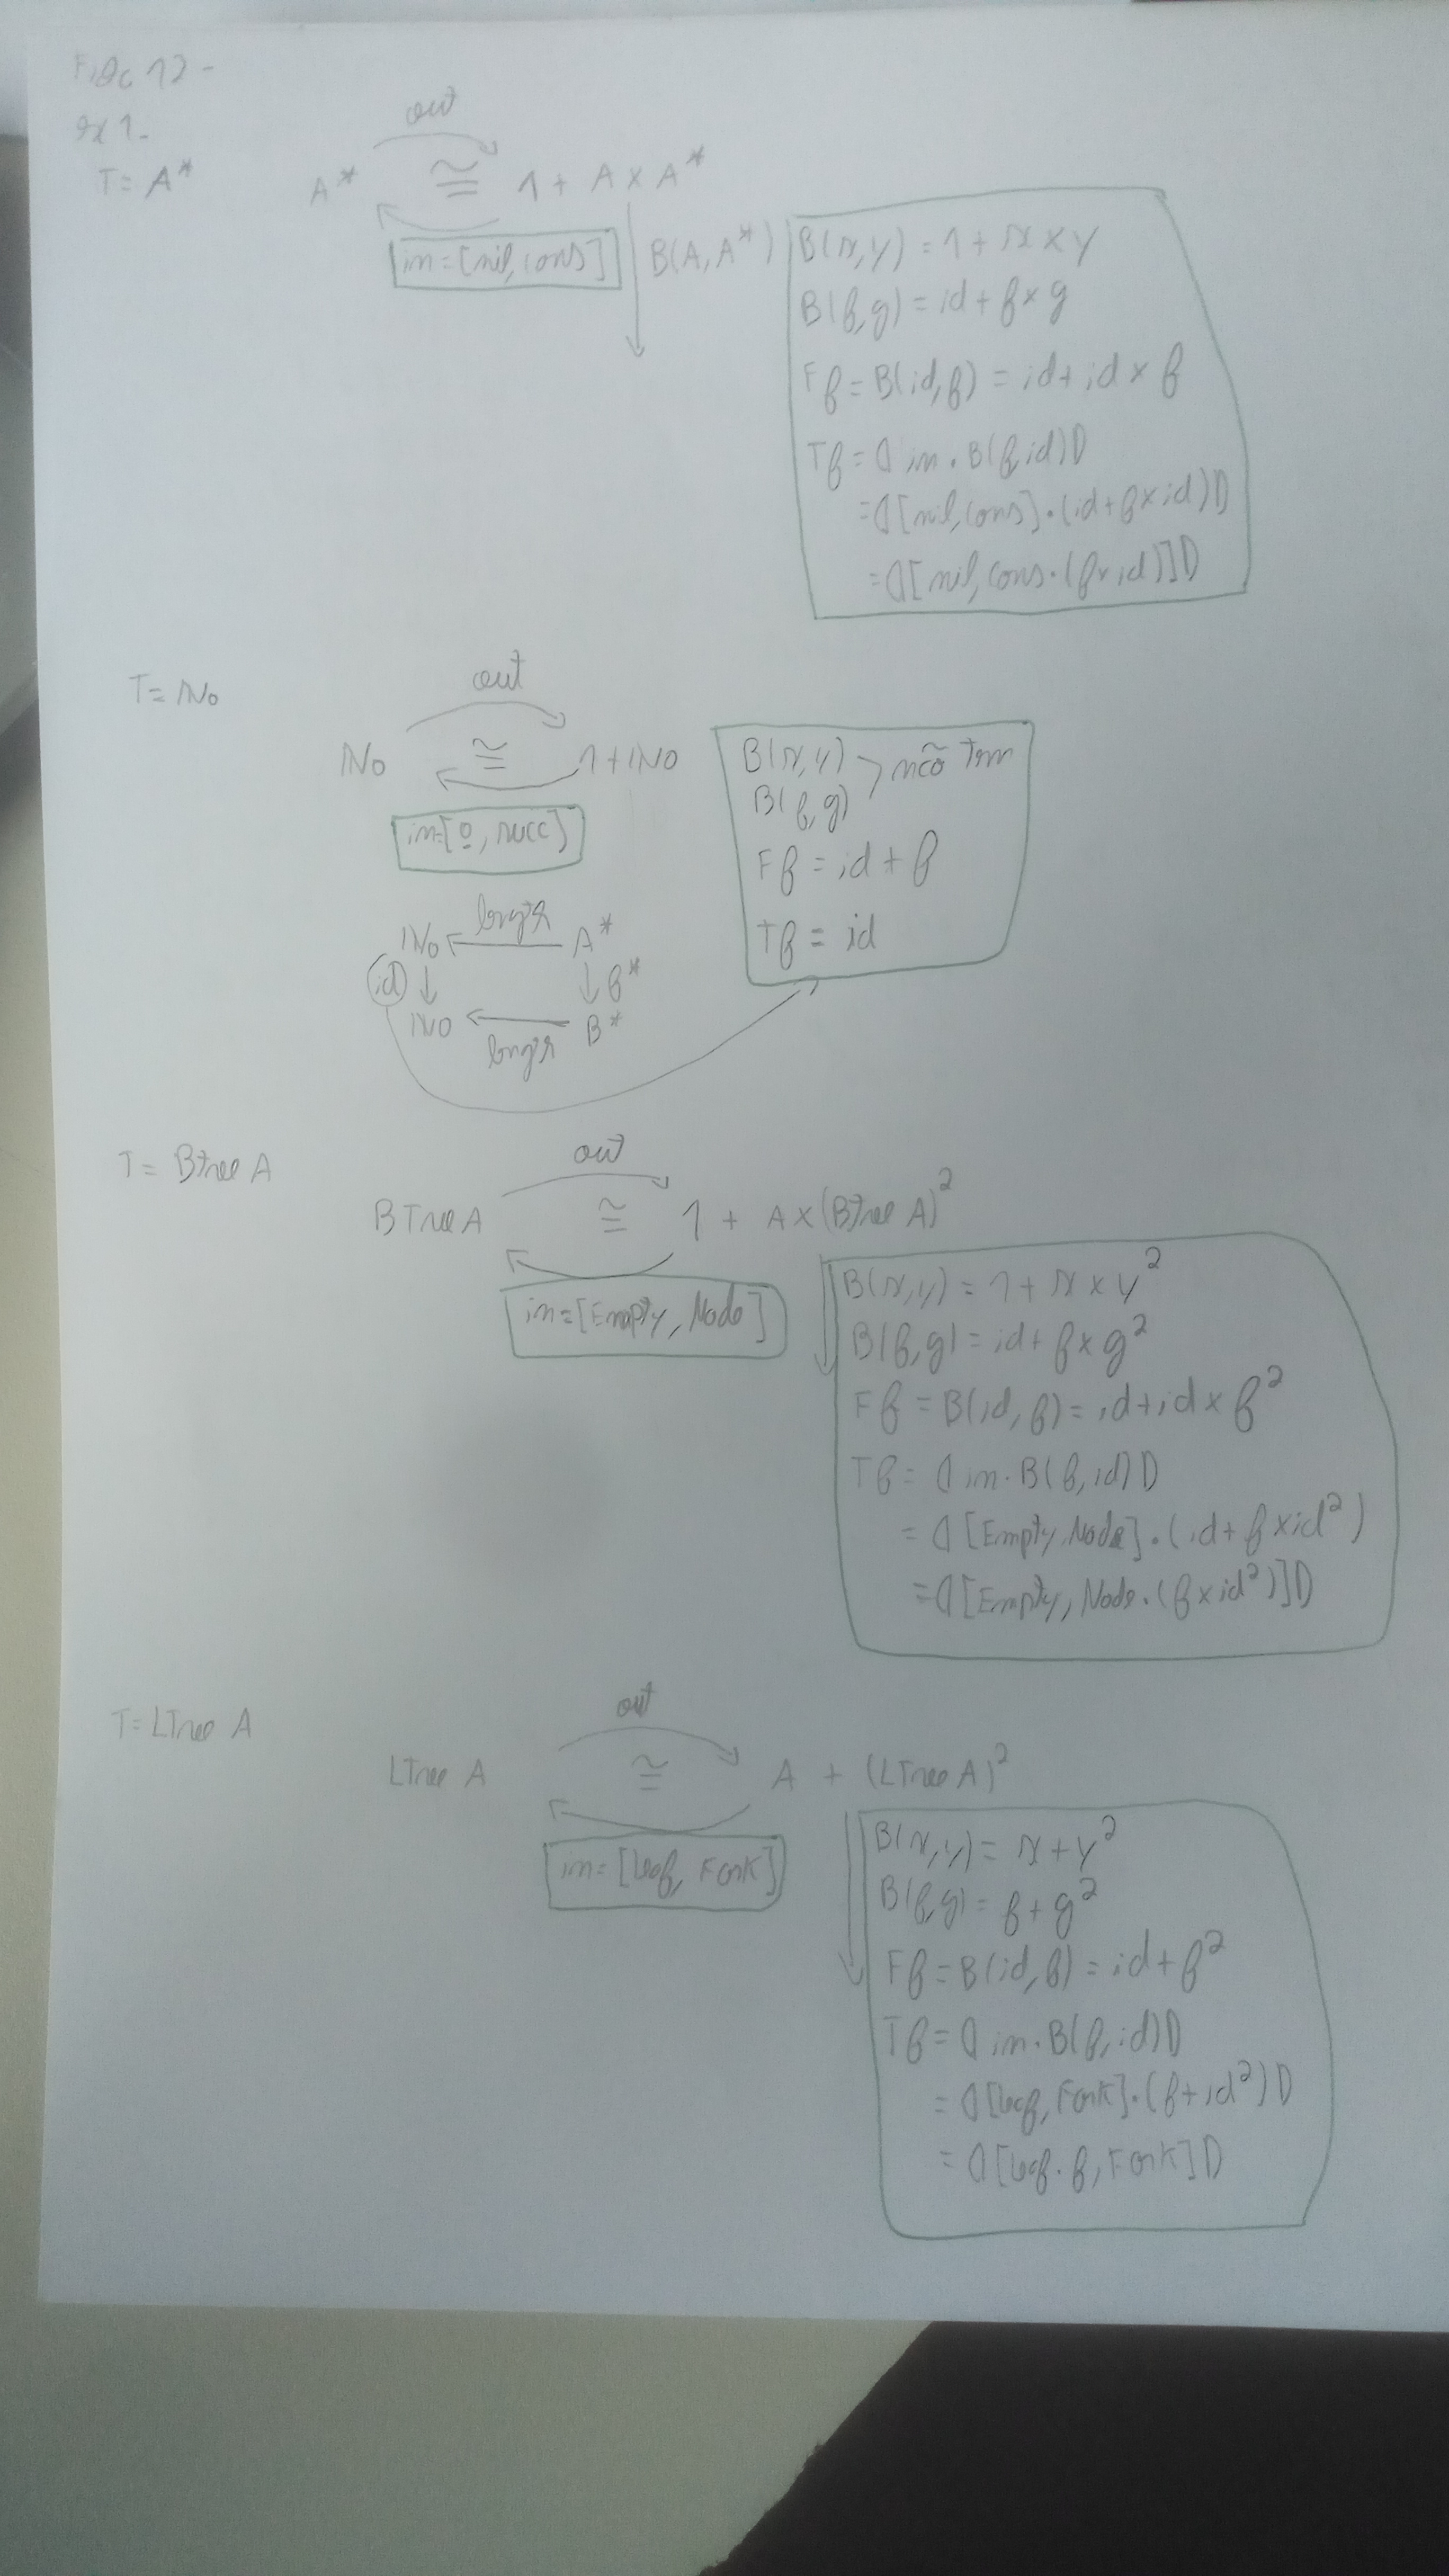 Fic 12 -
ex 1-
T = A*
out
A* ≅ 1 + A × A*
in = [nil, cons]
B(A, A*)
B(x, y) = 1 + x × y
B(f, g) = id + f × g
F f = B(id, f) = id + id × f
T f = ⦇ in . B(f, id) ⦈
= ⦇ [nil, cons] . (id + f × id) ⦈
= ⦇ [nil, cons . (f × id)] ⦈
T = ℕ₀
out
ℕ₀ ≅ 1 + ℕ₀
in = [0̲, succ]
B(x, y) > não tem
B(f, g)
F f = id + f
T f = id
length
ℕ₀ ← A*
id ↓ ↓ f*
ℕ₀ ← B*
length
T = Btree A
out
BTree A ≅ 1 + A × (Btree A)²
in = [Empty, Node]
B(x, y) = 1 + x × y²
B(f, g) = id + f × g²
F f = B(id, f) = id + id × f²
T f = ⦇ in . B(f, id) ⦈
= ⦇ [Empty, Node] . (id + f × id²)
= ⦇ [Empty, Node . (f × id²)] ⦈
T = LTree A
out
LTree A ≅ A + (LTree A)²
in = [Leaf, Fork]
B(x, y) = x + y²
B(f, g) = f + g²
F f = B(id, f) = id + f²
T f = ⦇ in . B(f, id) ⦈
= ⦇ [Leaf, Fork] . (f + id²) ⦈
= ⦇ [Leaf . f, Fork] ⦈